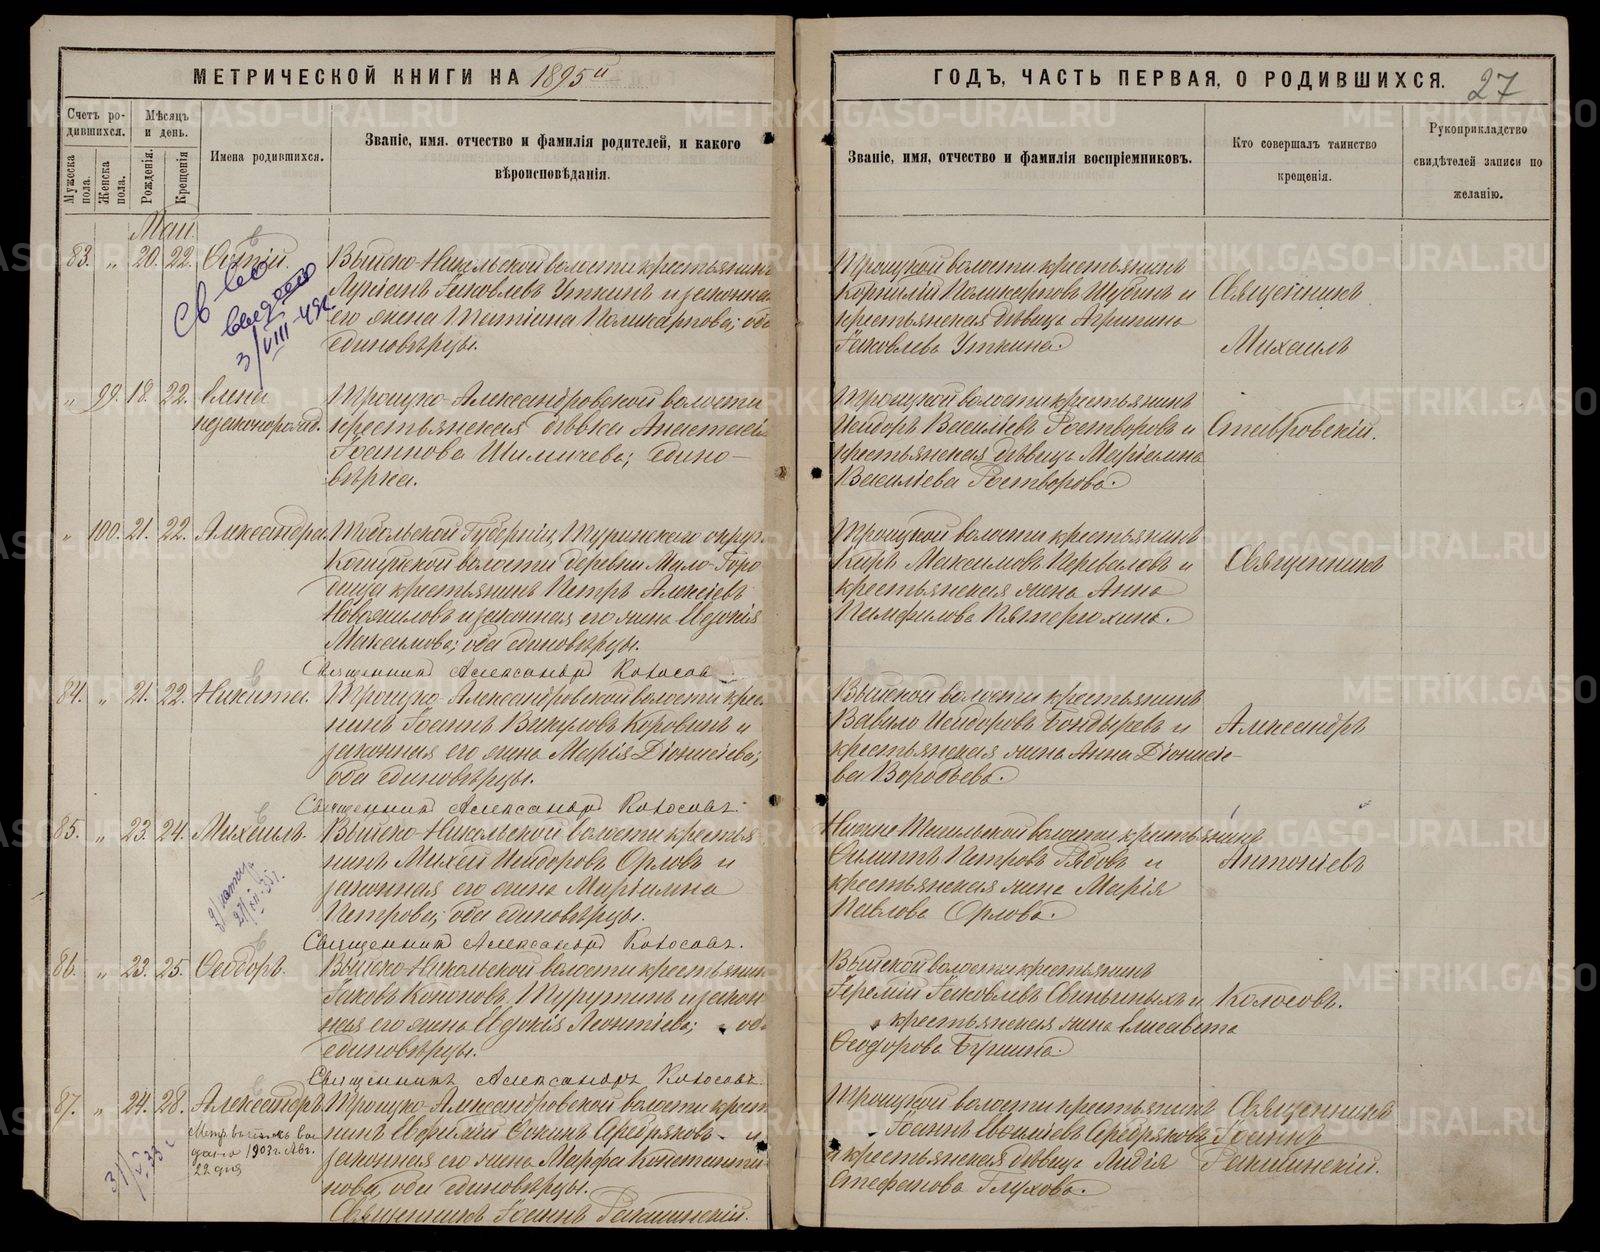 МЕТРИЧЕСКОЙ КНИГИ НА 1895й
ГОДЪ, ЧАСТЬ ПЕРВАЯ, О РОДИВШИХСЯ. 27
Счетъ родившихся.
Мужеска пола.
Женска пола.
Мѣсяцъ и день.
Рожденія.
Крещенія
Имена родившихся.
Званіе, имя. отчество и фамилія родителей, и какого
вѣроисповѣданія.
Званіе, имя, отчество и фамилія воспріемниковъ.
Кто совершалъ таинство
крещенія.
Рукоприкладство
свидѣтелей записи по
желанію.
Май
83. " 20. 22.
Выйско-Никольской волости крестьянинъ
Яковлевъ Уткинъ и законная
его жена Татіана Поликарпова; оба
единовѣрцы.
Троицкой волости крестьянинъ
Корнилій Поликарповъ Шубинъ и
крестьянская дѣвица Агрипина
Яковлева Уткина.
Священникъ
Михаилъ
Св-во
выдано
3/VIII-49
" 99. 18. 22. Елена
незаконорожд.
Троицко-Александровской волости
крестьянская дѣвка Анастасія
Іоаннова Шимичева; едино-
вѣрка.
Троицкой волости крестьянинъ
Исидоръ Василіевъ Растворовъ и
крестьянская дѣвица Маріамна
Василіева Растворова.
Ставровскій.
" 100. 21. 22. Александра.
Тобольской Губерніи, Туринскаго округа
волости деревни Мало-Горо-
дища крестьянинъ Петръ Алексіевъ
и законная его жена Евдокія
Максимова; оба единовѣрцы.
Священникъ Александръ Колосовъ
Троицкой волости крестьянинъ
Киръ Максимовъ Переваловъ и
крестьянская жена Анна
Памфилова Пятерюхина.
Священникъ
84. " 21. 22. Никита.
Троицко-Александровской волости крестья-
нинъ Іоаннъ Викуловъ Коровинъ и
законная его жена Марія Діонисіева;
оба единовѣрцы.
Священникъ Александръ Колосовъ.
Выйской волости крестьянинъ
Вавило Исидоровъ Бондыревъ и
крестьянская жена Анна Діонисіе-
ва Воробьева.
Александръ
85. " 23. 24. Михаилъ.
Выйско-Никольской волости крестья-
нинъ Михей Исидоровъ Орловъ и
законная его жена Маріамна
Петрова; оба единовѣрцы.
Священникъ Александръ Колосовъ.
Нижне Тагильской волости крестьянинъ
Филиппъ Петровъ Рябовъ и
крестьянская жена Марія
Павлова Орлова.
Антоніевъ
86. " 23. 25. Ѳеодоръ.
Выйско-Никольской волости крестьянинъ
Іаковъ Кононовъ Турутинъ и закон-
ная его жена Евдокія Леонтіева; оба
единовѣрцы.
Священникъ Александръ Колосовъ.
Выйской волости крестьянинъ
Іеремій Яковлевъ Свиньиныхъ и
крестьянская жена Елисавета
Ѳеодорова Бушина.
Колосовъ.
87. " 24. 28. Александръ.
Троицко-Александровской волости крестья-
нинъ Евфимій Ѳокинъ Серебряковъ и
законная его жена Марфа Константи-
нова, оба единовѣрцы.
Священникъ Іоаннъ
Троицкой волости крестьянинъ
Іоаннъ Евфиміевъ Серебряковъ
и крестьянская дѣвица Лидія
Стефанова Глухова.
Священникъ
Іоаннъ
Метр. выпись вы
дана 1903 г. Авг.
22 дня
METRIKI.GASO-URAL.RU